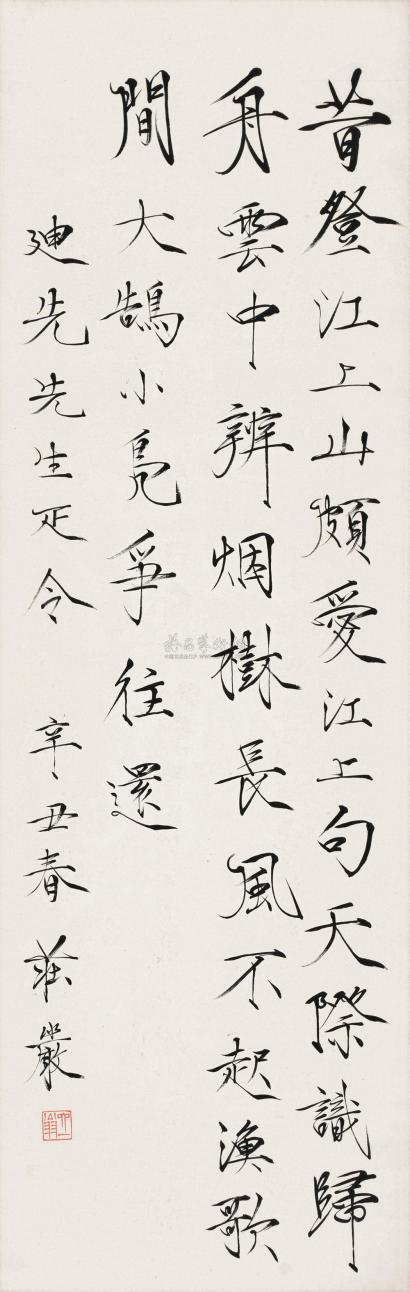 昔登江上山頗愛江上句天際識歸
舟雲中辨烟樹長風不起漁歌
間大鵠小鳧爭往還
迪先先生疋令 辛丑春 莊嚴